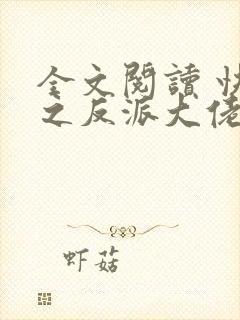 全文閱讀 快
之反派大佬
虾菇